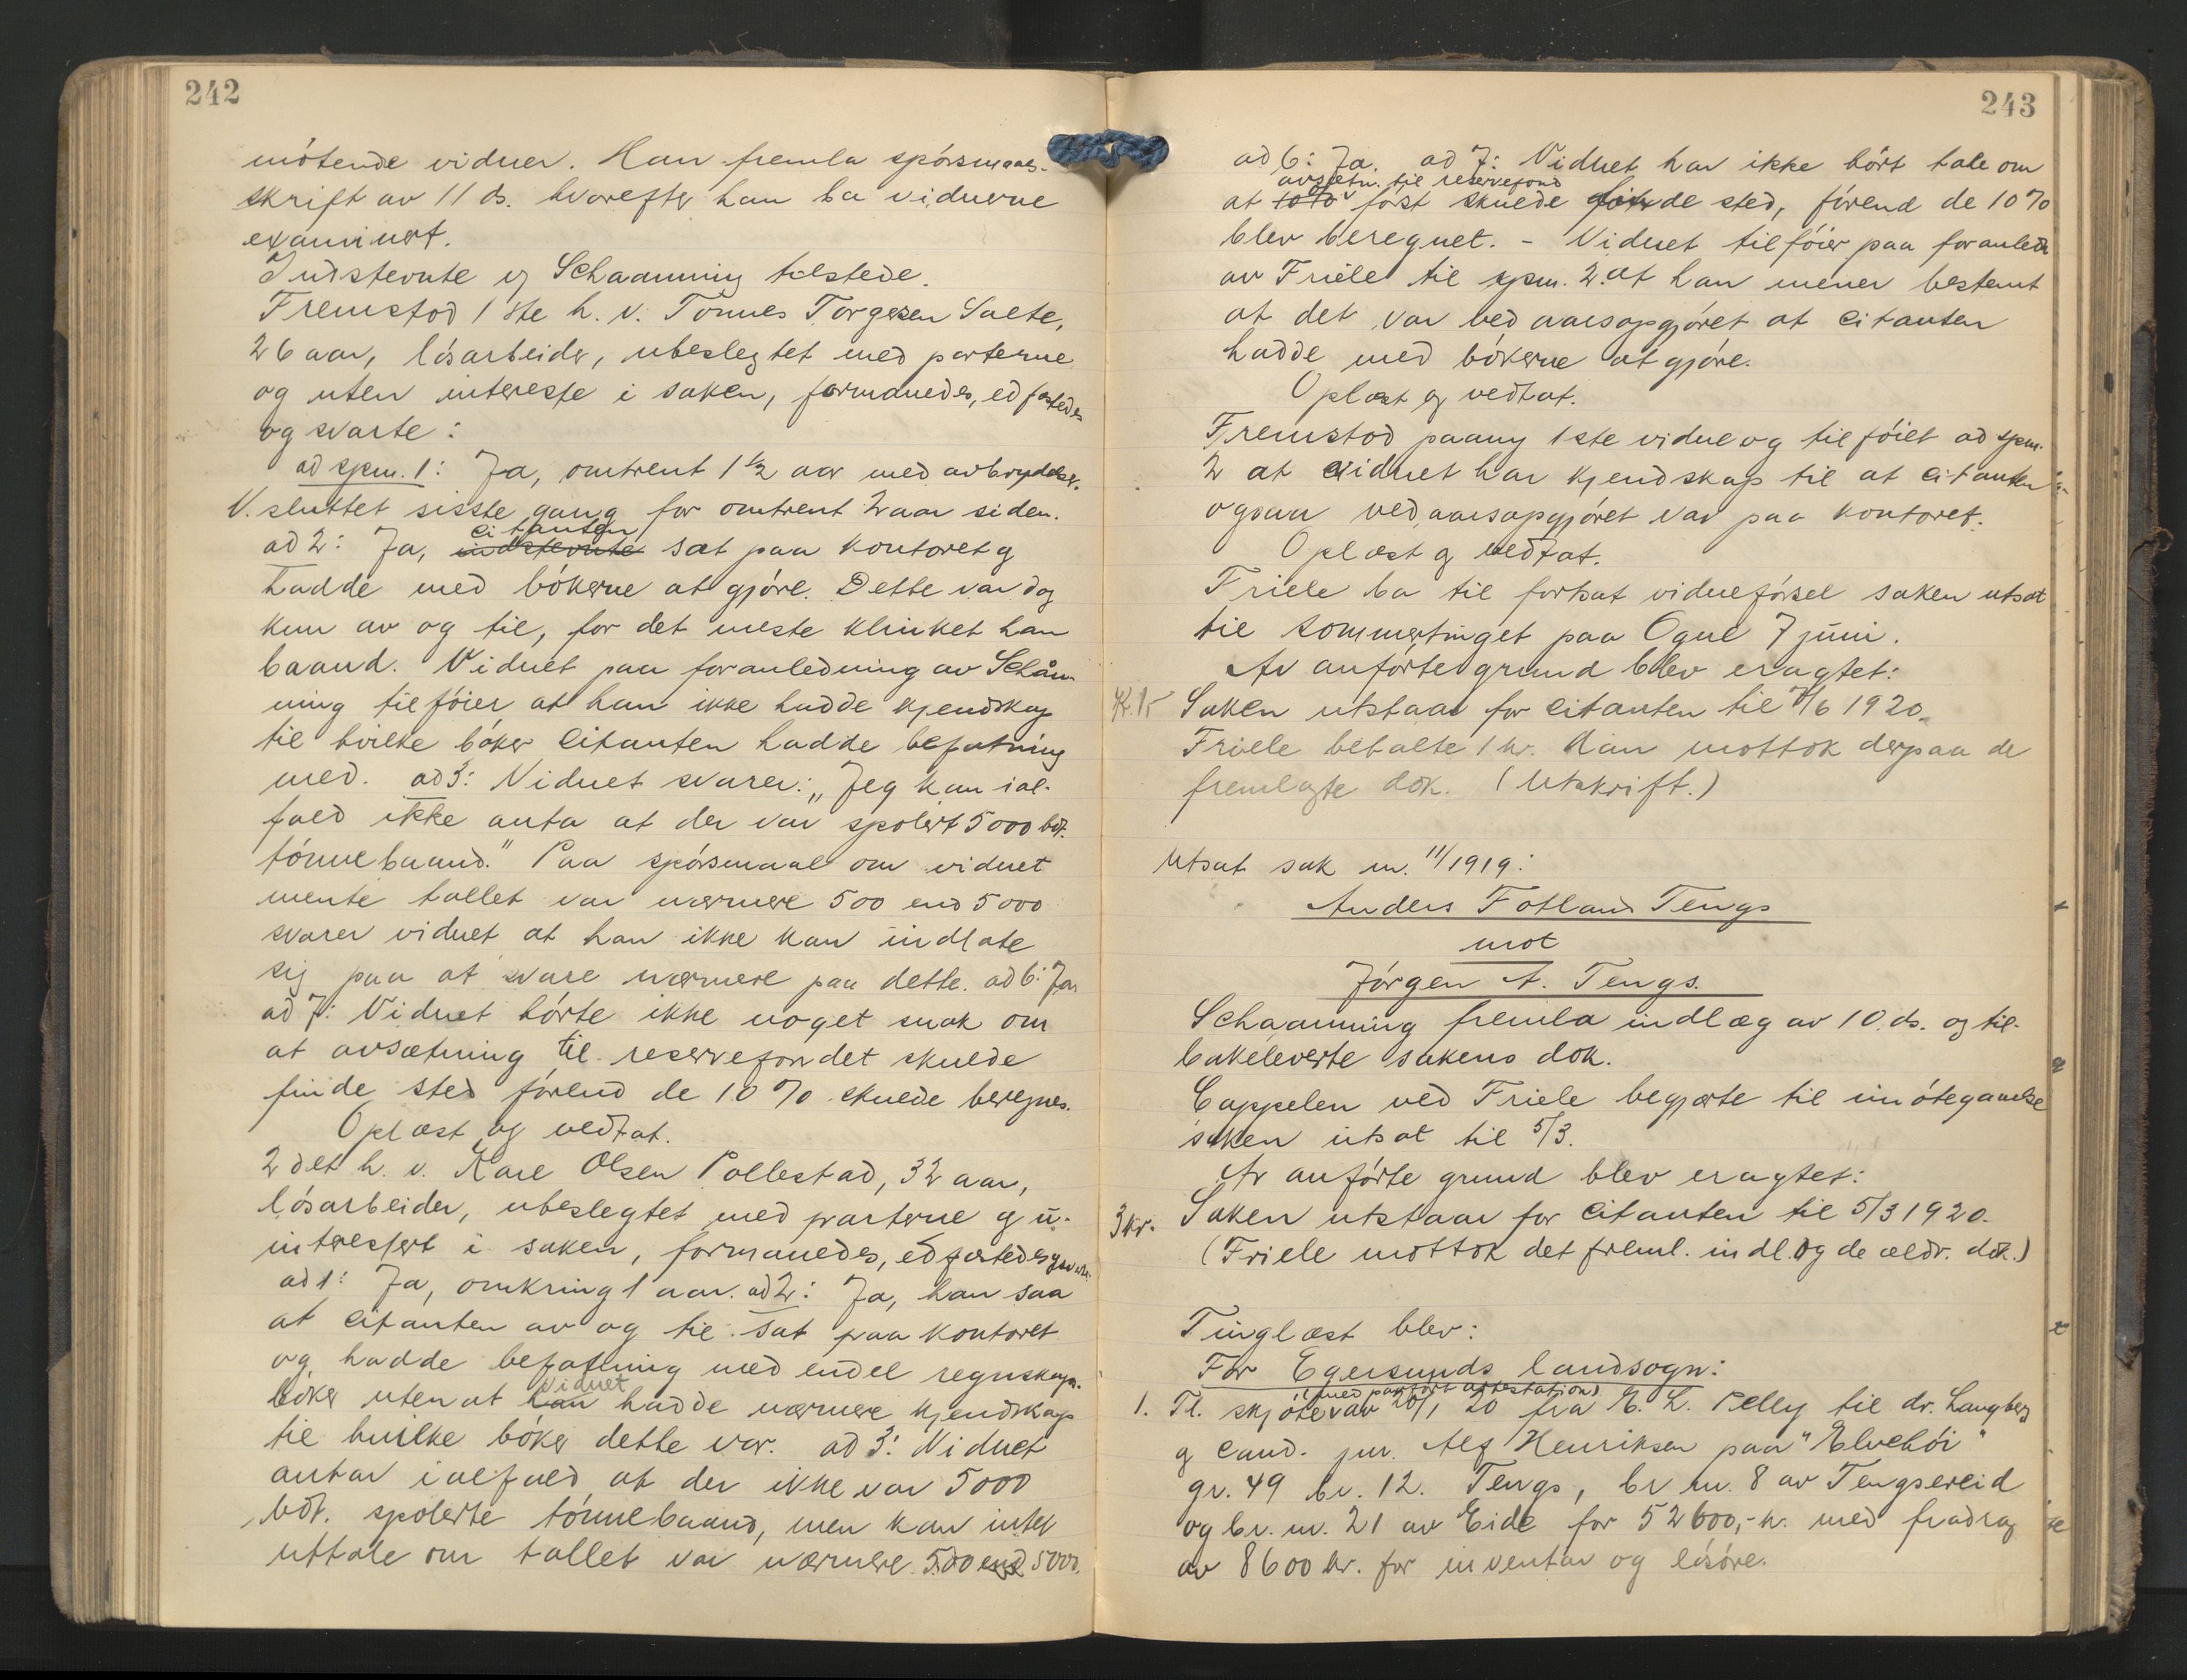 242
møtende vidner. Han fremla spørsmaas-
skrift av 11 ds. hvorefter han ba vidnerne
examinert.
Indstevnte og Schaanning tilstede.
Fremstod 1ste h. v. Tønnes Torgersen Salte,
26 aar, løsarbeider, ubeslegtet med parterne
og uten interesse i saken, formanedes, edfæstedes
og svarte:
ad spm. 1: Ja, omtrent 1 1/2 aar med avbrydelser.
V. sluttet sisste gang for omtrent 2 aar siden.
citanten
ad 2: Ja, indstevnte sat paa kontoret og
hadde med bøkerne at gjøre. Dette var dog
kun av og til, for det meste klinket han
baand. Vidnet paa foranledning av Schån-
ning tilføier at han ikke hadde kjendskap
til hvilke bøker citanten hadde befatning
med. ad 3: Vidnet svarer: „Jeg kan ial-
fald ikke anta at der var spolert 5000 bdt.
tønnebaand." Paa spørsmaal om vidnet
mente tallet var nærmere 500 end 5000
svarer vidnet at han ikke kan indlate
sig paa at svare nærmere paa dette. ad 6: Ja.
ad 7: Vidnet hørte ikke noget snak om
at avsætning til reservefondet skulde
finde sted førend de 10% skulde beregnes.
Oplæst og vedtat.
2det h. v. Karl Olsen Pollestad, 32 aar,
løsarbeider, ubeslegtet med parterne og u-
interessert i saken, formanedes, edfæstedes og svarte:
ad 1: Ja, omkring 1 aar. ad 2: Ja, han saa
at citanten av og til sat paa kontoret
og hadde befatning med endel regnskaps-
vidnet
bøker uten at han hadde nærmere kjendskap
til hvilke bøker dette var. ad 3: Vidnet
antar ialfald at der ikke var 5000
bdt. spolerte tønnebaand, men kan intet
uttale om tallet var nærmere 500 end 5000.
243
ad 6: Ja. ad 7: Vidnet har ikke hørt tale om
avsetn. til reservefond
at 10% først skulde finde sted, førend de 10%
blev beregnet. - Vidnet tilføier paa foranledn
av Friele til spm. 2 at han mener bestemt
at det var ved aarsopgjøret at citanten
hadde med bøkerne at gjøre.
Oplæst og vedtat.
Fremstod paany 1ste vidne og tilføiet ad spm.
2 at vidnet har kjendskap til at citanten
ogsaa ved aarsopgjøret var paa kontoret.
Oplæst og vedtat.
Friele ba til fortsat vidneførsel saken utsat
til sommertinget paa Ogne 7 juni.
Av anførte grund blev eragtet:
Kr. 15 Saken utstaar for citanten til 7/6 1920.
Friele betalte 1 kr. Han mottok derpaa de
fremlagte dok. (Utskrift.)
Utsat sak nr. 11/1919:
Anders Fotland Tengs
mot
Jørgen A. Tengs.
Schaanning fremla indlæg av 10. ds. og til-
bakeleverte sakens dok.
Cappelen ved Friele begjærte til imøtegaaelse
saken utsat til 5/3.
Av anførte grund blev eragtet:
3 kr. Saken utstaar for citanten til 5/3 1920.
(Friele mottok det freml. indl. og de ældr. dok.)
Tinglæst blev:
For Egersunds landsogn:
(med paaført attestation)
1. Tl. skjøte av 20/1 20 fra E. L. Pelly til dr. Langberg
og cand. jur. Alf Henriksen paa "Elvehøi"
gr. 49 br. 12. Tengs, br. nr. 8 av Tengsereid
og br. nr. 21 av Eide for 52600,- kr. med fradrag
av 8600 kr. for inventar og løsøre.